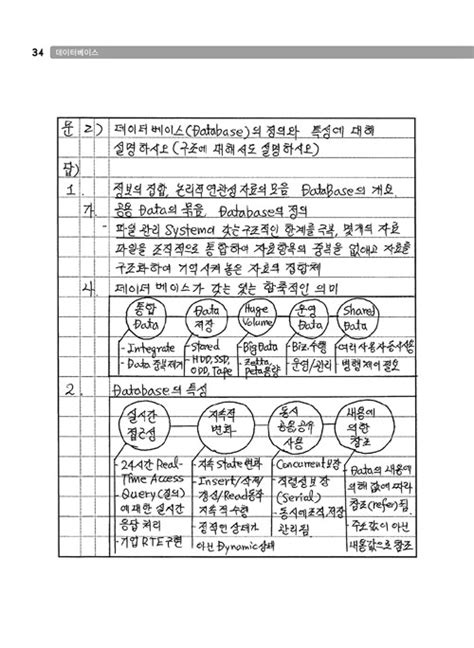 34 데이터베이스
문 2) 데이터베이스(Database)의 정의와 특성에 대해
설명하시오(구조에 대해서도 설명하시오)
답)
1. 정보의 집합, 논리적 연관성 자료의 모음 DataBase의 개요
가. 공용 Data의 묶음, Database의 정의
- 파일 관리 System이 갖는 구조적인 한계를 극복, 몇개의 자료
파일을 조직적으로 통합하여 자료항목의 중복을 없애고 자료를
구조화하여 기억시켜 놓은 자료의 집합체
나. 데이터 베이스가 갖는 함축적인 의미
통합 Data
Data 저장
Huge Volume
운영 Data
Shared Data
- Integrate
- Data 중복제거
- Stored
- HDD, SSD, ODD, Tape
- Big Data
- Zetta, Peta용량
- Biz.수행
- 운영/관리
- 여러 사용자동시사용
- 병행제어 필요
2. Database의 특성
실시간 접근성
지속적 변화
동시 공유
사용
내용에 의한 참조
- 24시간 Real-
Time Access
- Query(질의)
에 대한 실시간
응답 처리
- 기업 RTE구현
- 지속 State변화
- Insert/삭제/
갱신/Read등이
지속적 수행
- 정적인 상태가
아닌 Dynamic상태
- Concurrent보장
- 직렬성보장
(Serial)
- 동시에 조직, 저장
관리됨
- Data의 내용에
의해 값에 따라
참조(refer)됨
- 주소값이 아닌
내용값으로 참조